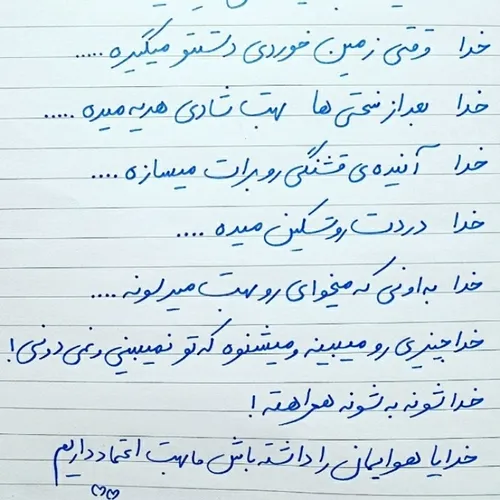 خدا وقتی زمین خوردی دستتو میگیره .....
خدا بعد از سختی ها بهت شادی هدیه میده .....
خدا آینده ی قشنگی رو برات میسازه ....
خدا دردت رو تسکین میده ....
خدا به اونی که میخوای رو بهت میرسونه ....
خدا چیزی رو میبینه و میشنوه که تو نمیبینی و نمی دونی!
خدا شونه به شونه هواهته!
خدایا هوایمانی را داشته باش ما بهت اعتماد داریم